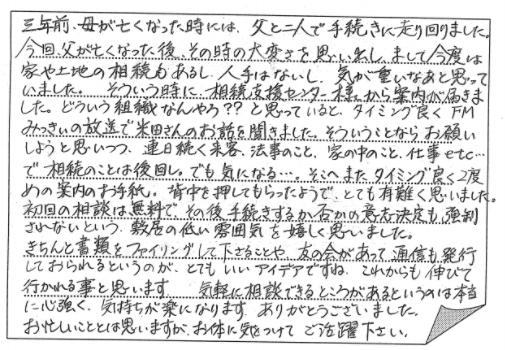 三年前、母が亡くなった時には、父と二人で手続きに走り回りました。
今回、父が亡くなった後、その時の大変さを思い出しまして、今度は
家や土地の相続もあるし、人手はないし、気が重いなあと思って
いました。そういう時に、相続支援センター様から案内が届きま
した。どういう組織なんやろ??と思っていると、タイミング良くFM
みっきぃの放送で米田さんのお話を聞きました。そういうことならお願い
しようと思いつつ、連日続く来客、法事のこと、家の中のこと、仕事etc…
で相続のことは後回し。でも気になる…。そこへまた、タイミング良く2度
めの案内のお手紙。背中を押してもらったようで、とても有難く思いました。
初回の相談は無料で、その後、手続きするか否かの意志決定も、強制
されないという、敷居の低い雰囲気を嬉しく思いました。
きちんと書類をファイリングして下さることや、友の会があって通信も発行
しておられるというのが、とてもいいアイデアですね。これからも伸びて
行かれる事と思います。気軽に相談できるところがあるというのは本当
に心強く、気持ちが楽になります。ありがとうございました。
お忙しいこととは思いますが、お体に気をつけてご活躍下さい。